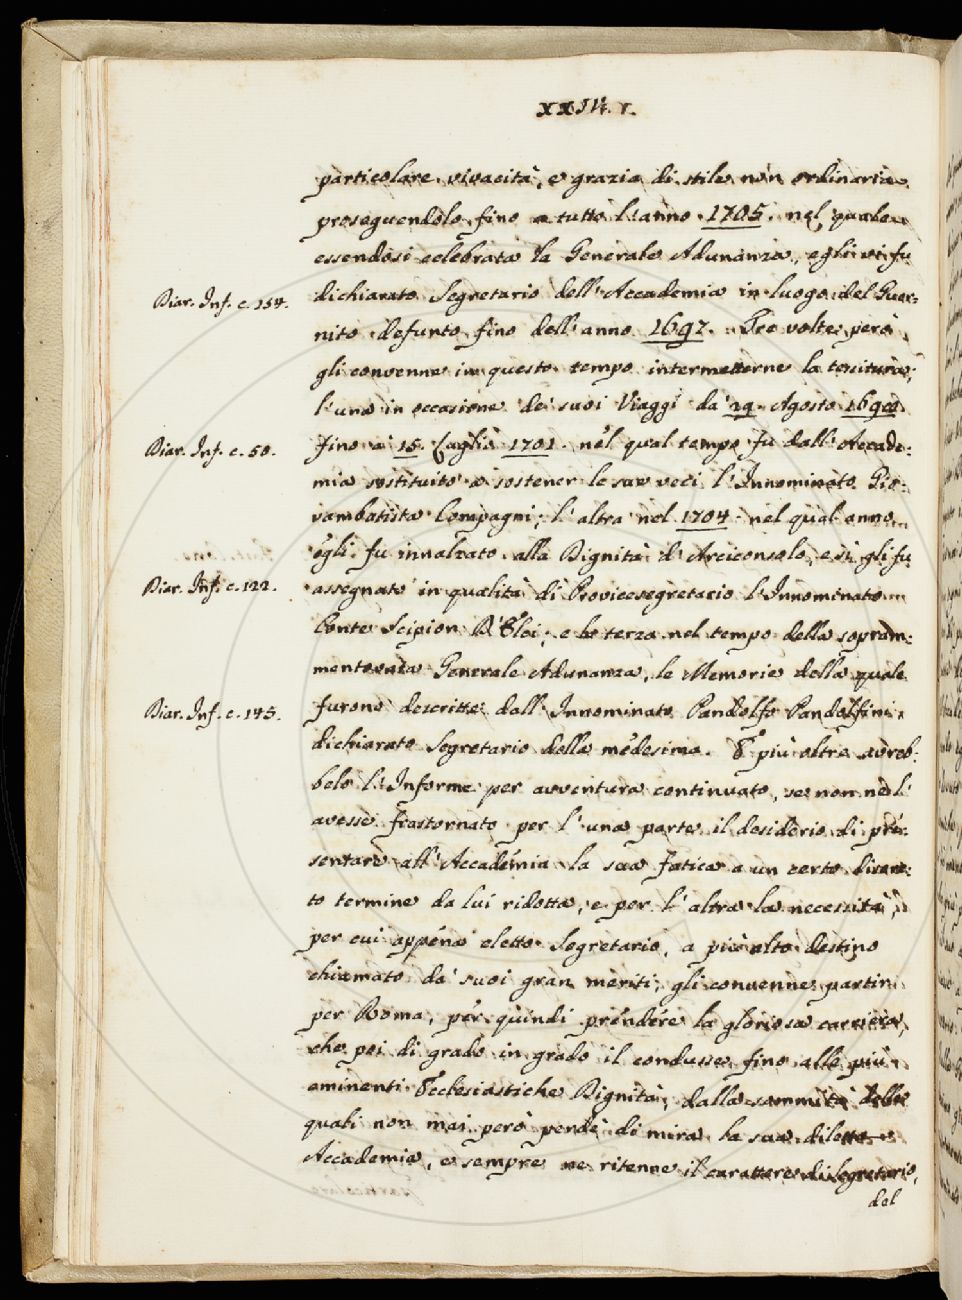 particolare vivacità, e grazia di stile non ordinaria
proseguendolo fino a tutto l'anno 1705. nel quale
essendosi celebrata la Generale Adunanza, egli vi fu
Diar. Inf. c. 154.
dichiarato Segretario dell'Accademia in luogo del Guer=
nito defunto fino dell'anno 1697. Tre volte però
gli convenne in questo tempo intermetterne la tessitura;
l'una in occasione de' suoi Viaggi da' 29. Agosto
Diar. Inf. c. 50.
fino a' 15. Luglio 1701. nel qual tempo fu dall'Accade=
mia sostituito a sostener le sue veci l'Innominato Gio=
vambatista Compagni; l'altra nel 1704. nel qual anno
egli fu innalzato alla Dignità d'Arciconsolo, e si gli fu
Diar. Inf. c. 122.
assegnato in qualità di Provicesegretario l'Innominato
Conte Scipion D'Elci; e la terza nel tempo della sopram=
mentovata Generale Adunanza, le Memorie della quale
Diar. Inf. c. 145.
furono descritte dall'Innominato Pandolfo Pandolfini,
dichiarato Segretario della medesima. E più oltre avreb=
belo l'Informe per avventura continuato, se non ne l'
avesse frastornato per l'una parte il desiderio di pre=
sentare all'Accademia la sua fatica a un certo discre=
to termine da lui ridotta, e per l'altra la necessità,
per cui appena eletto Segretario, a più alto destino
chiamato da' suoi gran meriti, gli convenne partir
per Roma, per quindi prendere la gloriosa carriera,
che poi di grado in grado il condusse fino alle più
eminenti Ecclesiastiche Dignità; dalla sommità delle
quali non mai però perdè di mira la sua diletta
Accademia, e sempre ne ritenne il carattere di Segretario,
del